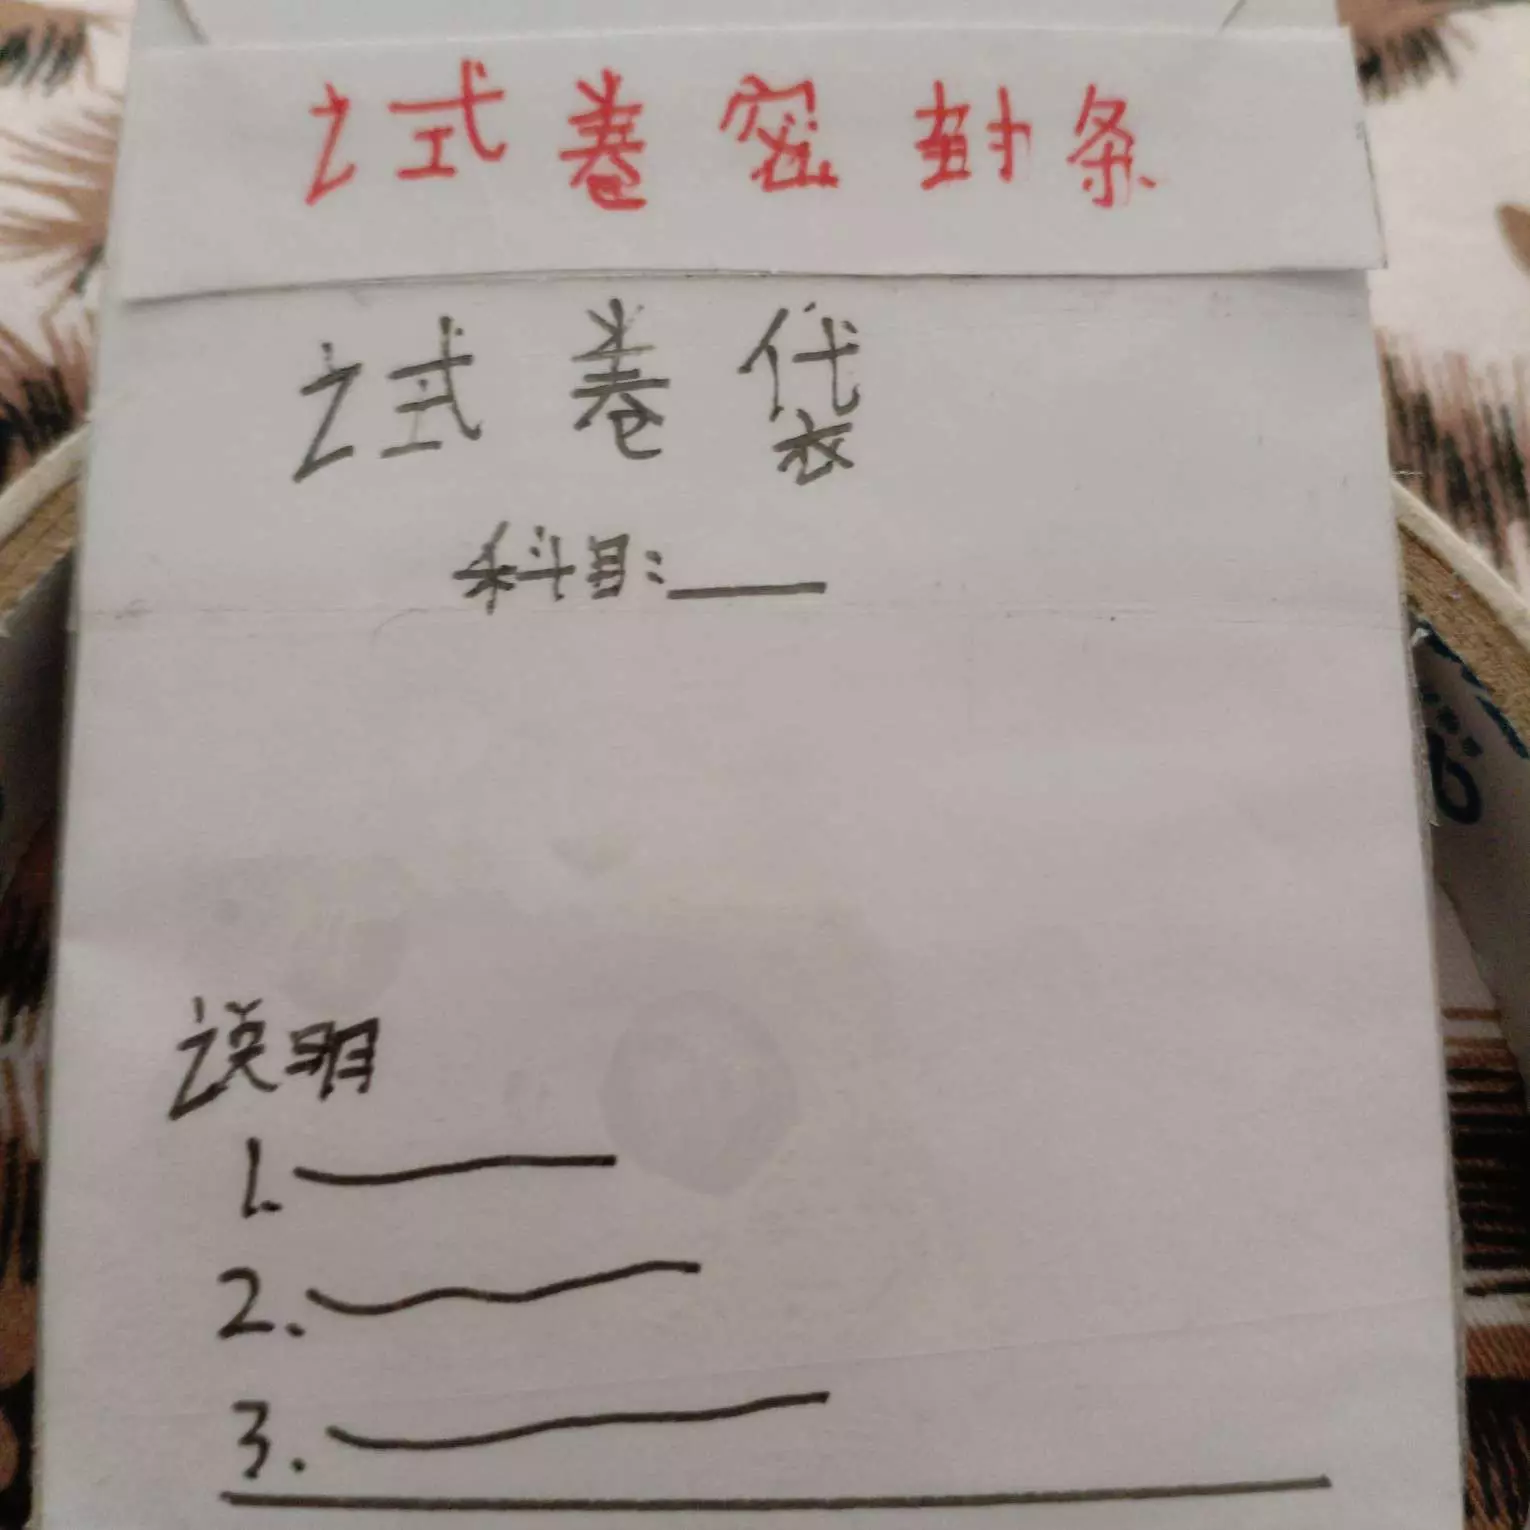 试卷密封条
试卷袋
科目:____
说明
1.
2.
3.